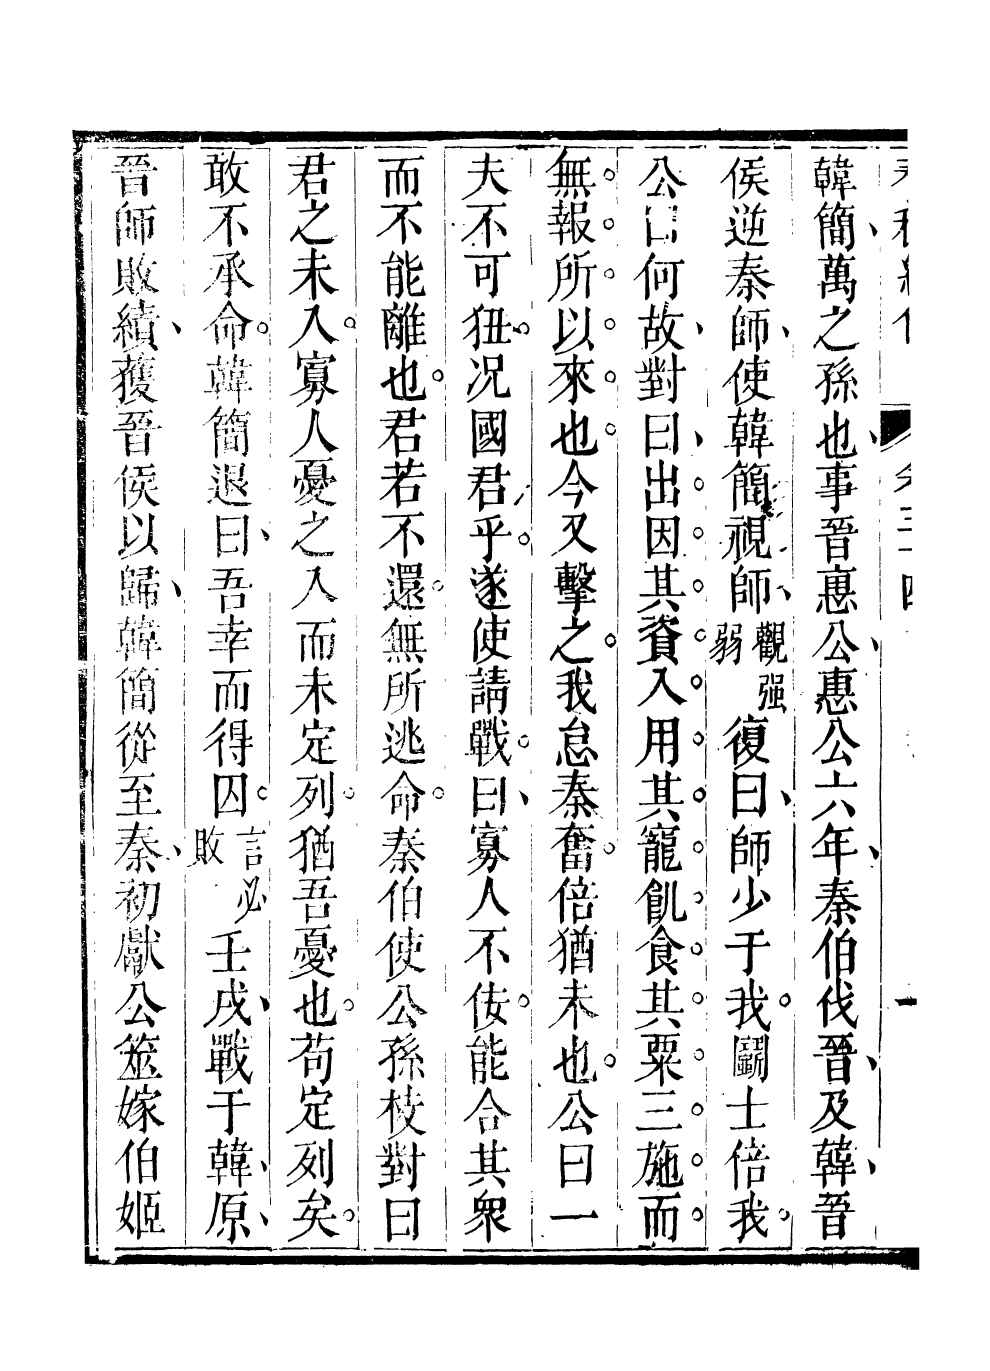 韓簡萬之孫也事晉惠公惠公六年秦伯伐晉及韓晉
侯逆秦師使韓簡視師觀强弱復曰師少于我鬭士倍我
公曰何故對曰出因其資入用其寵飢食其粟三施而
無報所以來也今又擊之我怠秦奮倍猶未也公曰一
夫不可狃况國君乎遂使請戰曰寡人不佞能合其眾
而不能離也君若不還無所逃命秦伯使公孫枝對曰
君之未入寡人憂之入而未定列猶吾憂也苟定列矣
敢不承命韓簡退曰吾幸而得囚言必敗壬戌戰于韓原
晉師敗績獲晉侯以歸韓簡從至秦初獻公筮嫁伯姬